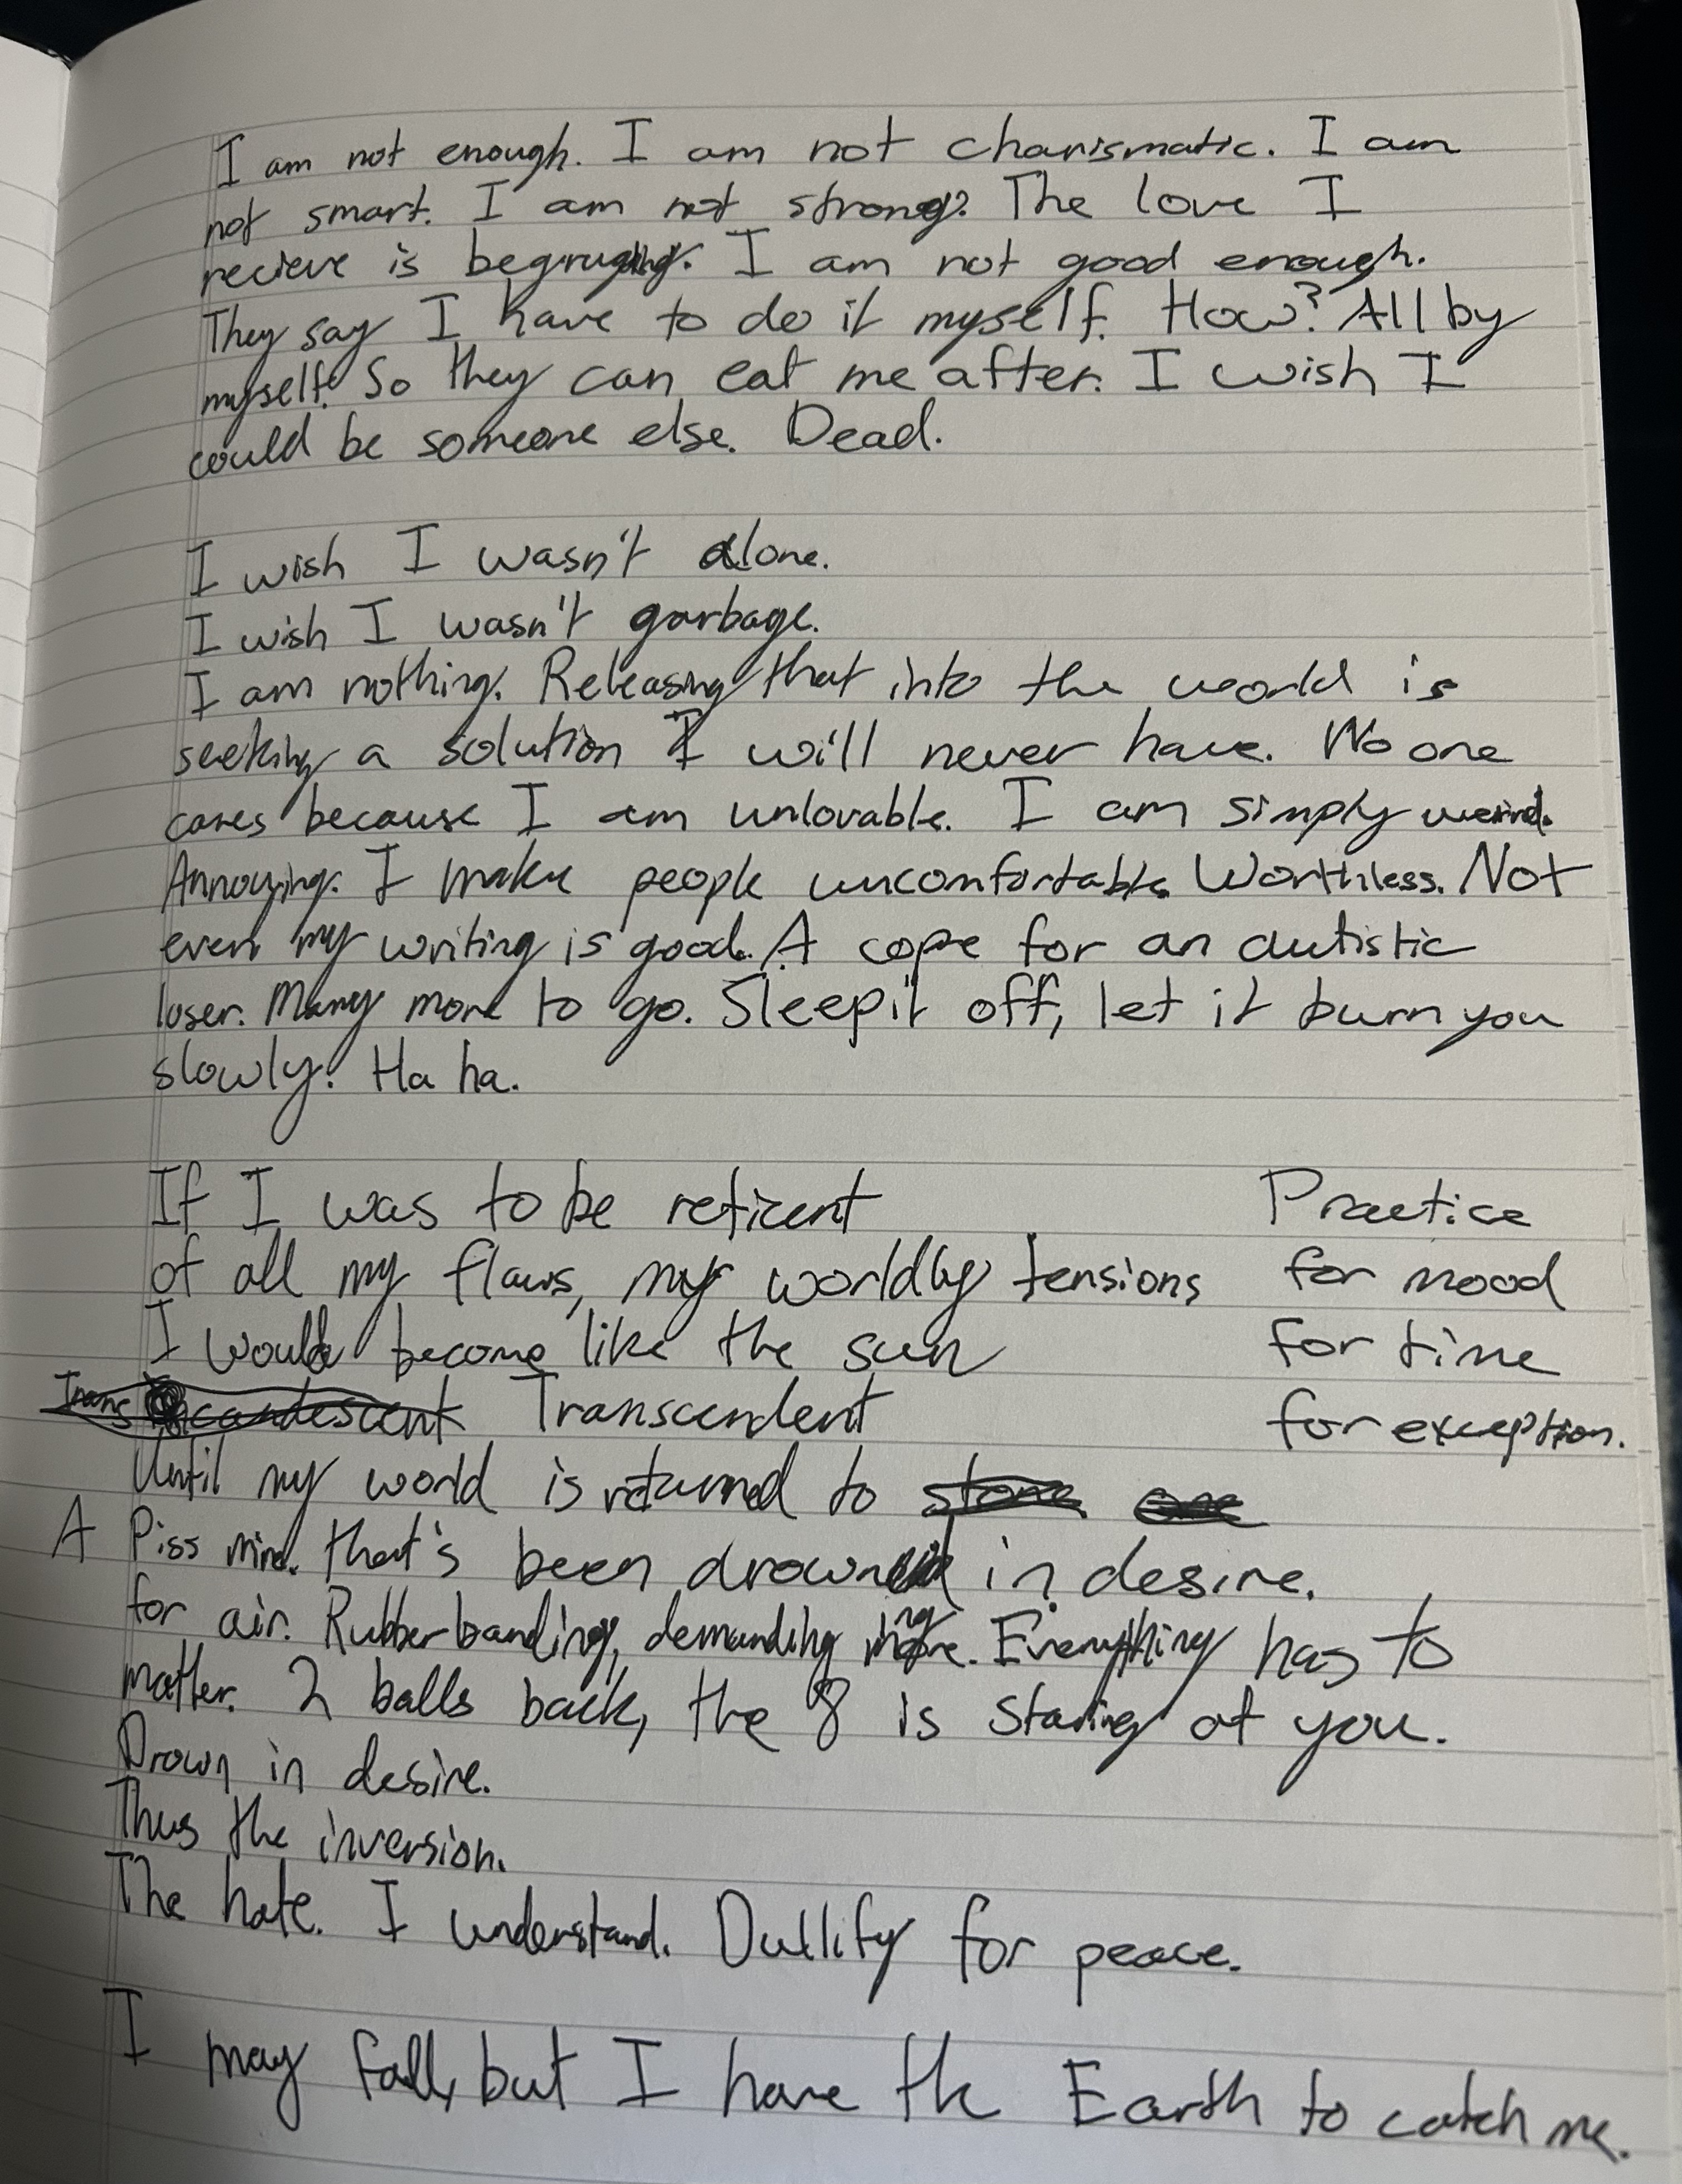 I am not enough. I am not charismatic. I am
not smart. I am not strong. The love I
recieve is begruging. I am not good enough.
They say I have to do it myself. How? All by
myself. So they can eat me after. I wish I
could be someone else. Dead.
I wish I wasn't alone.
I wish I wasn't garbage.
I am nothing. Releasing that into the world is
seeking a solution I will never have. No one
cares because I am unlovable. I am simply weird.
Annoying. I make people uncomfortable. Worthless. Not
even my writing is good. A cope for an autistic
loser. Many more to go. Sleep it off, let it burn you
slowly. Ha ha.
If I was to be reticent
of all my flaws, my worldly tensions
I would become like the sun
Transcendent
Until my world is returned to
A Piss mind. that's been drowned in desire.
for air. Rubberbanding, demanding more. Everything has to
matter. 2 balls back, the 8 is staring at you.
Drown in desire.
Thus the inversion.
The hate. I understand. Dullify for peace.
I may fall, but I have the Earth to catch me.
Practice
for mood
for time
for exception.